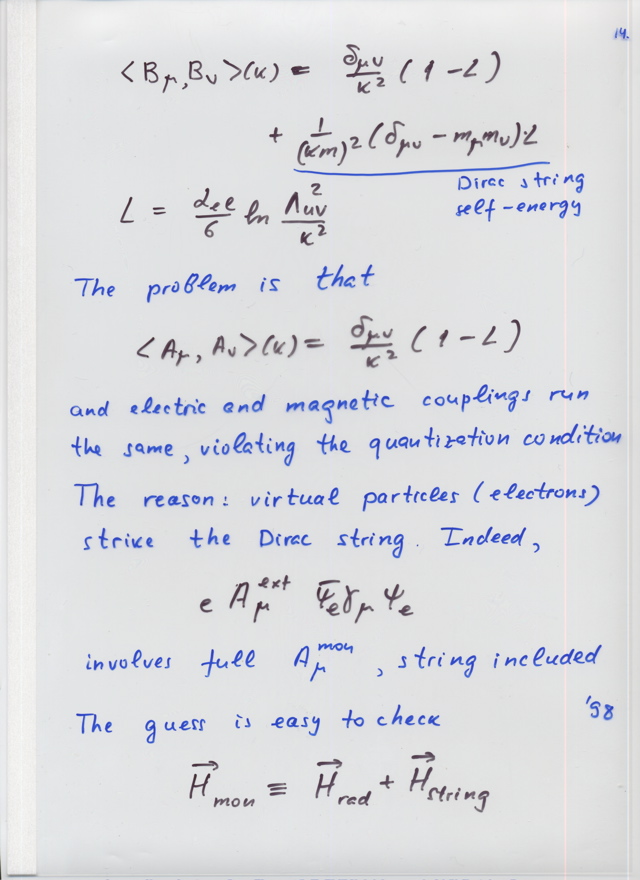 14.
<B_μ, B_ν>(κ) = δ_μν/κ² (1 - L)
+ 1/(κm)² (δ_μν - m_μ m_ν)·L
Dirac string
self-energy
L = α_el/6 ln Λ²_UV/κ²
The problem is that
<A_μ, A_ν>(κ) = δ_μν/κ² (1 - L)
and electric and magnetic couplings run
the same, violating the quantization condition
The reason: virtual particles (electrons)
strike the Dirac string. Indeed,
e A_μ^ext Ψ̄_e γ_μ Ψ_e
involves full A_μ^mon, string included
The guess is easy to check '98
H⃗_mon ≡ H⃗_rad + H⃗_string